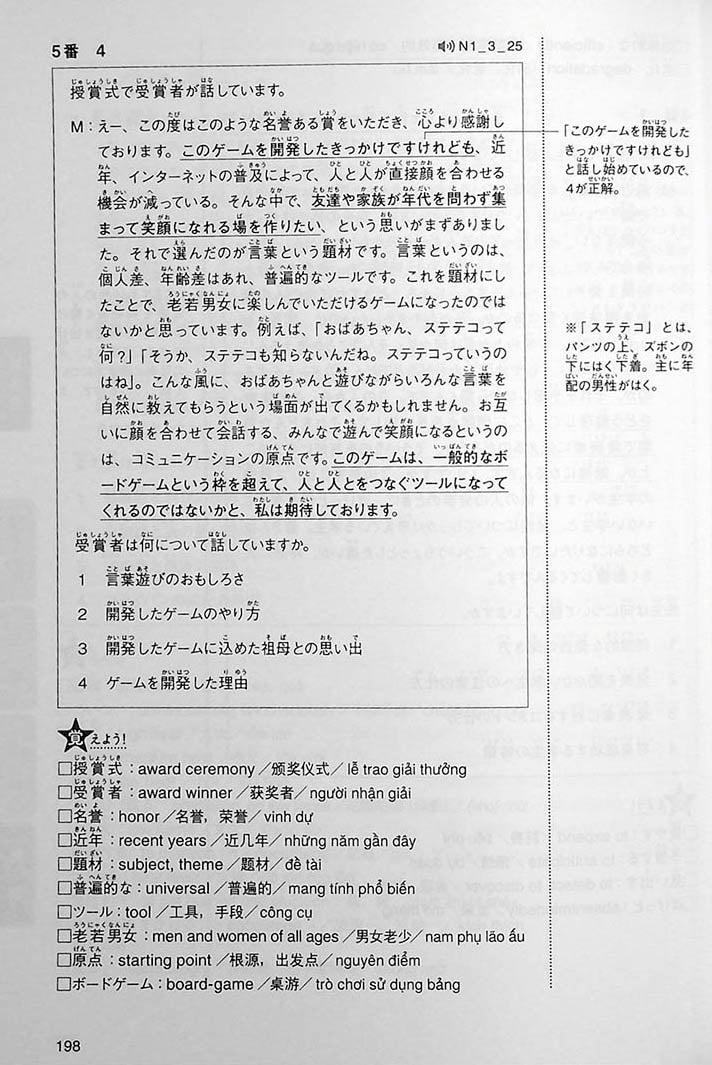 5番 4
N1_3_25
授賞式で受賞者が話しています。
M：えー、この度はこのような名誉ある賞をいただき、心より感謝し
ております。このゲームを開発したきっかけですけれども、近
年、インターネットの普及によって、人と人が直接顔を合わせる
機会が減っている。そんな中で、友達や家族が年代を問わず集
まって笑顔になれる場を作りたい、という思いがまずありまし
た。それで選んだのが言葉という題材です。言葉というのは、
個人差、年齢差はあれ、普遍的なツールです。これを題材にし
たことで、老若男女に楽しんでいただけるゲームになったのでは
ないかと思っています。例えば、「おばあちゃん、ステテコって
何？」「そうか、ステテコも知らないんだね。ステテコっていうの
はね」。こんな風に、おばあちゃんと遊びながらいろんな言葉を
自然に教えてもらうという場面が出てくるかもしれません。お互
いに顔を合わせて会話する、みんなで遊んで笑顔になるというの
は、コミュニケーションの原点です。このゲームは、一般的なボ
ードゲームという枠を超えて、人と人とをつなぐツールになって
くれるのではないかと、私は期待しております。
受賞者は何について話していますか。
1 言葉遊びのおもしろさ
2 開発したゲームのやり方
3 開発したゲームに込めた祖母との思い出
4 ゲームを開発した理由
「このゲームを開発した
きっかけですけれども」
と話し始めているので、
4が正解。
※「ステテコ」とは、
パンツの上、ズボンの
下にはく下着。主に年
配の男性がはく。
覚えよう！
□授賞式：award ceremony／颁奖仪式／lễ trao giải thưởng
□受賞者：award winner／获奖者／người nhận giải
□名誉：honor／名誉，荣誉／vinh dự
□近年：recent years／近几年／những năm gần đây
□題材：subject, theme／题材／đề tài
□普遍的な：universal／普遍的／mang tính phổ biến
□ツール：tool／工具，手段／công cụ
□老若男女：men and women of all ages／男女老少／nam phụ lão ấu
□原点：starting point／根源，出发点／nguyên điểm
□ボードゲーム：board-game／桌游／trò chơi sử dụng bảng
198